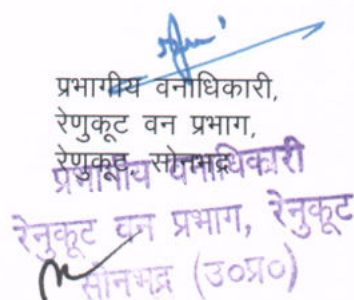 प्रभागीय वनाधिकारी,
रेणुकूट वन प्रभाग,
रेणुकूट, सोनभद्र
प्रभागीय वनाधिकारी
रेनुकूट वन प्रभाग, रेनुकूट
सोनभद्र (उ०प्र०)